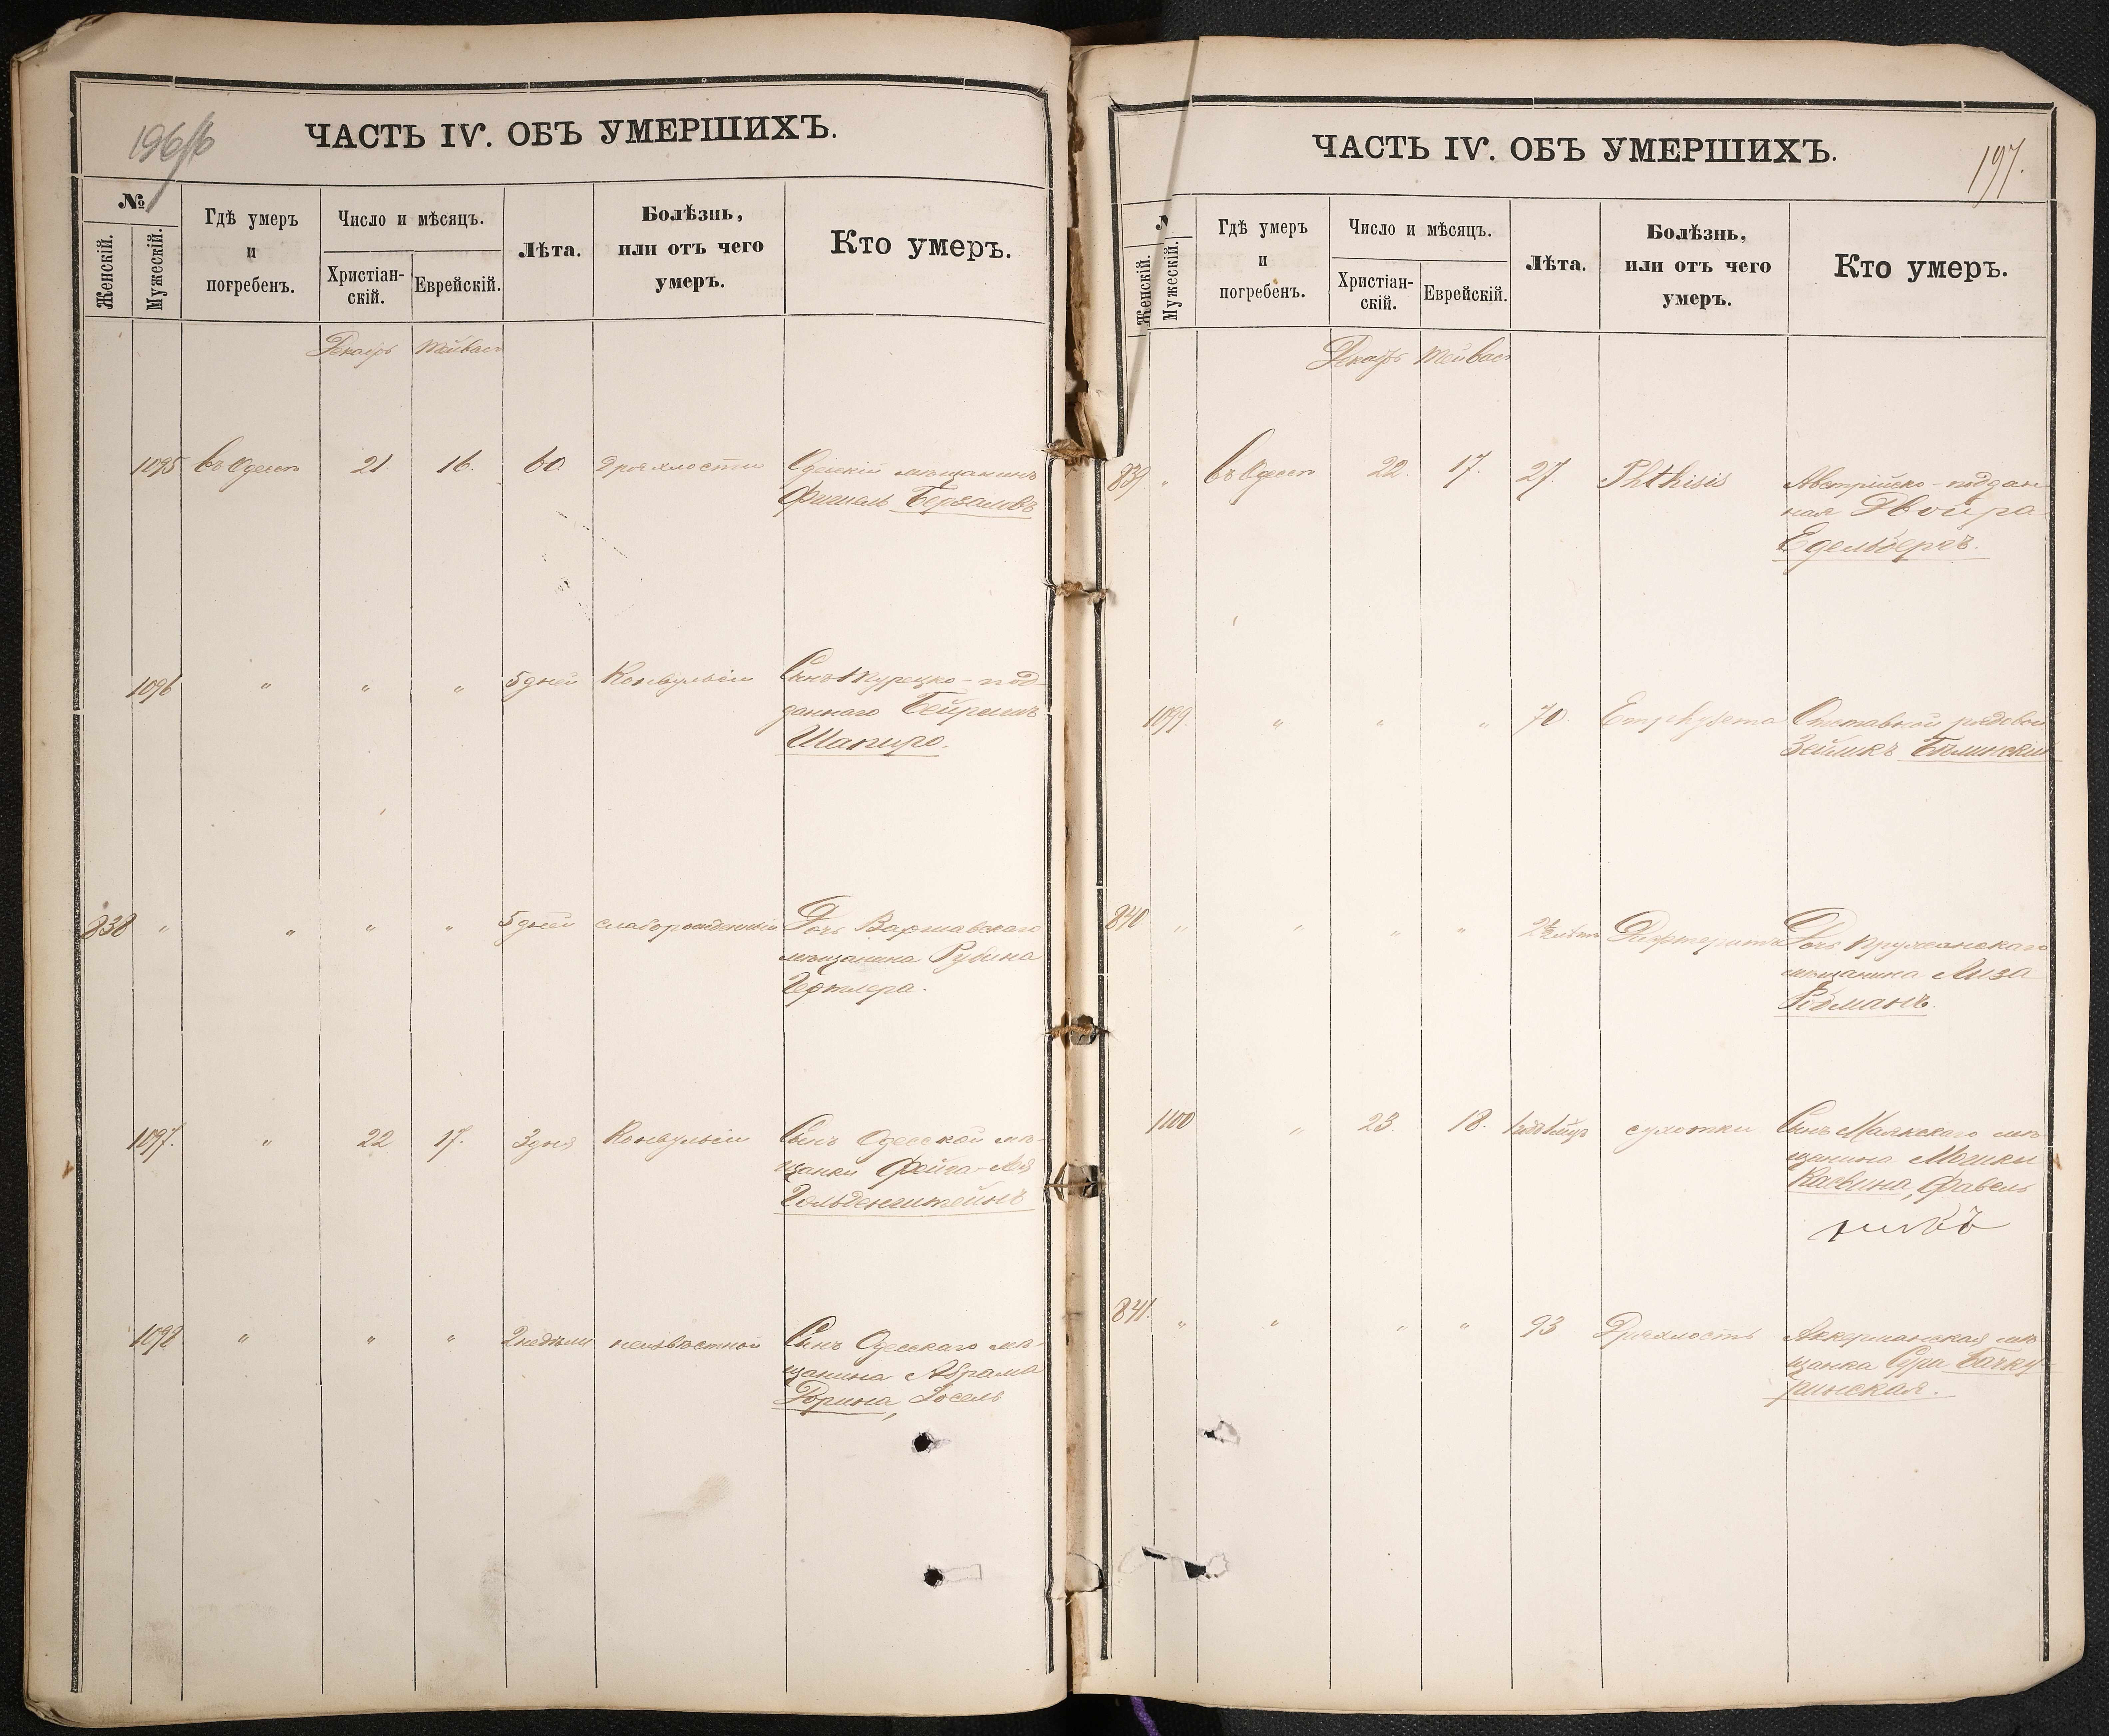 196/б
ЧАСТЬ IV. ОБЪ УМЕРШИХЪ.
№
Женскій.
Мужескій.
Гдѣ умеръ
и
погребенъ.
Число и мѣсяцъ.
Христіан-
скій.
Еврейскій.
Лѣта.
Болѣзнь,
или отъ чего
умеръ.
Кто умеръ.
Декабрь Тейвасъ
1095 въ Одессѣ 21 16. 60 Дряхлости Одесскій мѣщанинъ
Фишель
1096 " " " 5 дней Конвульсіи Сынъ Турецко-под-
даннаго Бейришъ
Шапиро.
838 " " " " 5 дней слаборожденный Дочь Варшавскаго
мѣщанина Рубина
Гертлера.
1097. " 22 17. 3 дня Конвульсіи Сынъ Одесской мѣ-
щанки Фейга-Лея
Гольденштейнъ
1098 " " " 2 недѣли неизвѣстной Сынъ Одесскаго мѣ-
щанина Абрама
Горина, Іосель
ЧАСТЬ IV. ОБЪ УМЕРШИХЪ.
197.
Женскій.
Мужескій.
Гдѣ умеръ
и
погребенъ.
Число и мѣсяцъ.
Христіан-
скій.
Еврейскій.
Лѣта.
Болѣзнь,
или отъ чего
умеръ.
Кто умеръ.
Декабрь Тейвасъ
839. " въ Одессѣ 22. 17. 27. Phthisis Австрійско-поддан
ная Двойра
Едельбергъ.
1099. " " " 70. Emphysema Отставной рядовой
Зейликъ Бѣлинскій
840 " " " " 2½ лѣтъ Дифтеритъ Дочь Пружанскаго
мѣщанина Лиза
Ройзманъ.
1100 " 23. 18. сухотки Сынъ Маякскаго мѣ
щанина Мошки
Касвина, Фавель
841. " " " " 93 Дряхлость Аккерманская мѣ
щанка Сура Бачку-
ринская.